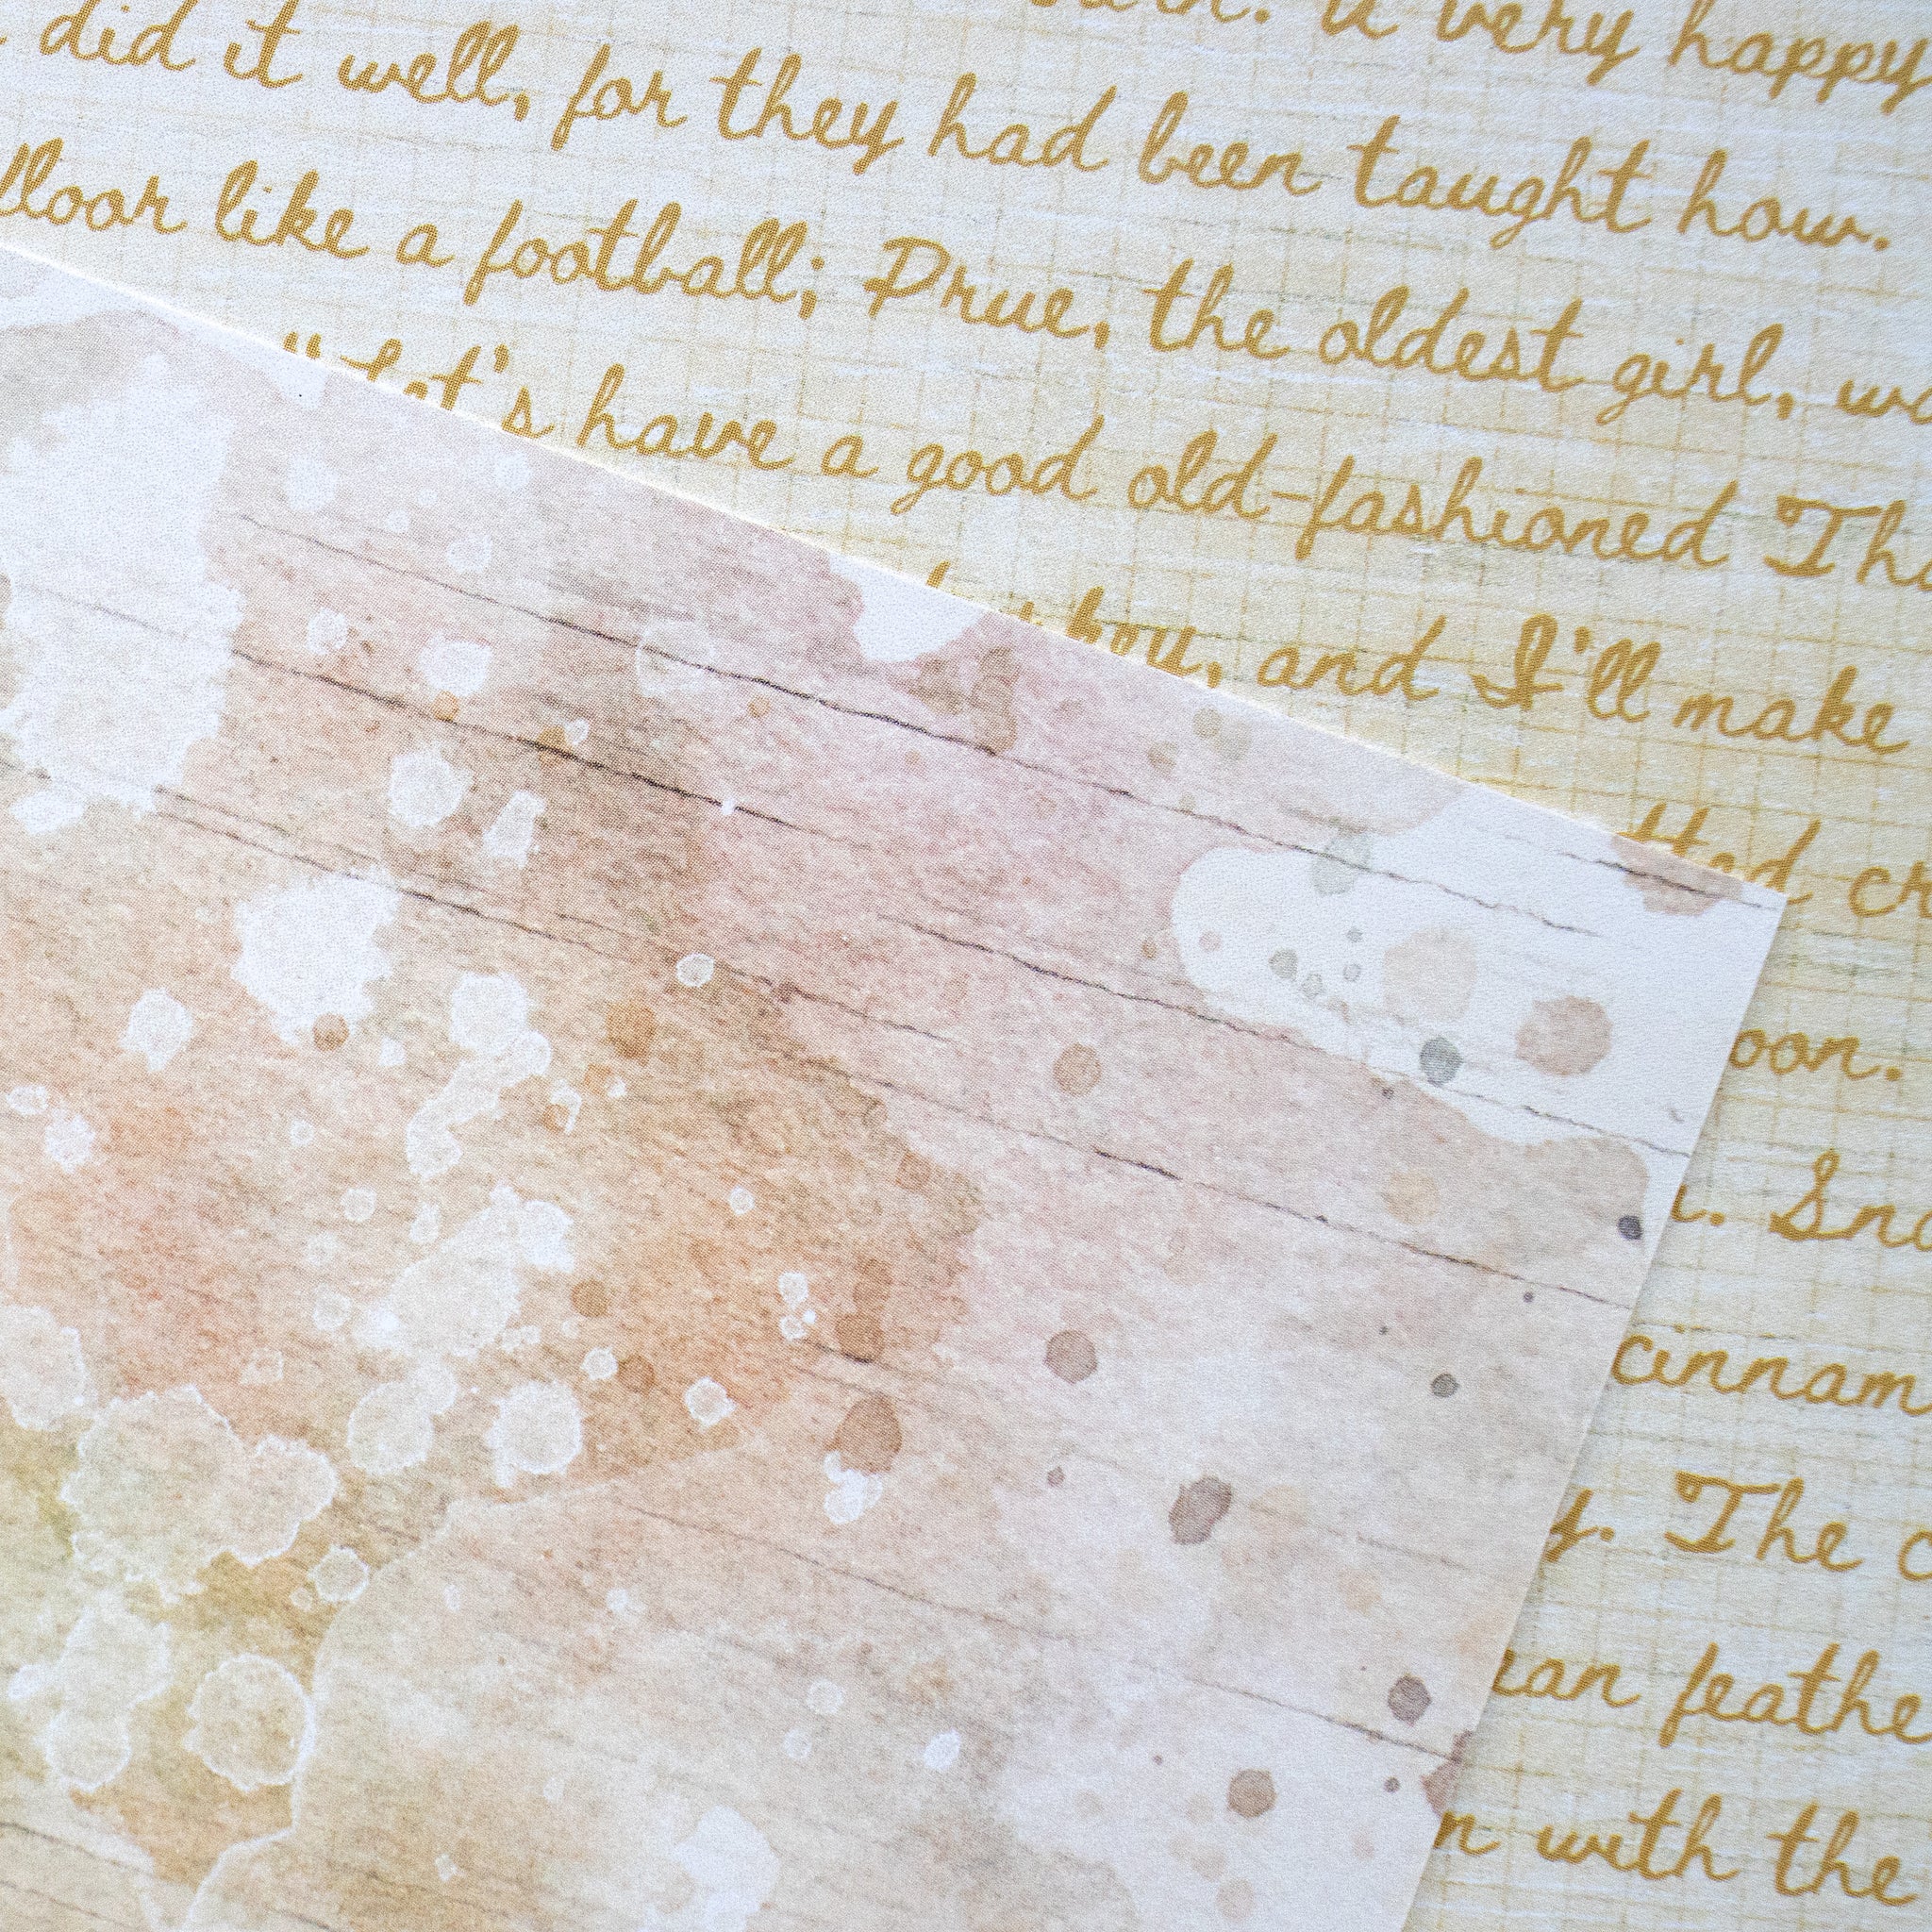 A very happy
did it well, for they had been taught how.
floor like a football; Prue, the oldest girl, 
"Let's have a good old-fashioned
boy, and I'll make
oon.
cinnam
The
feathe
with the